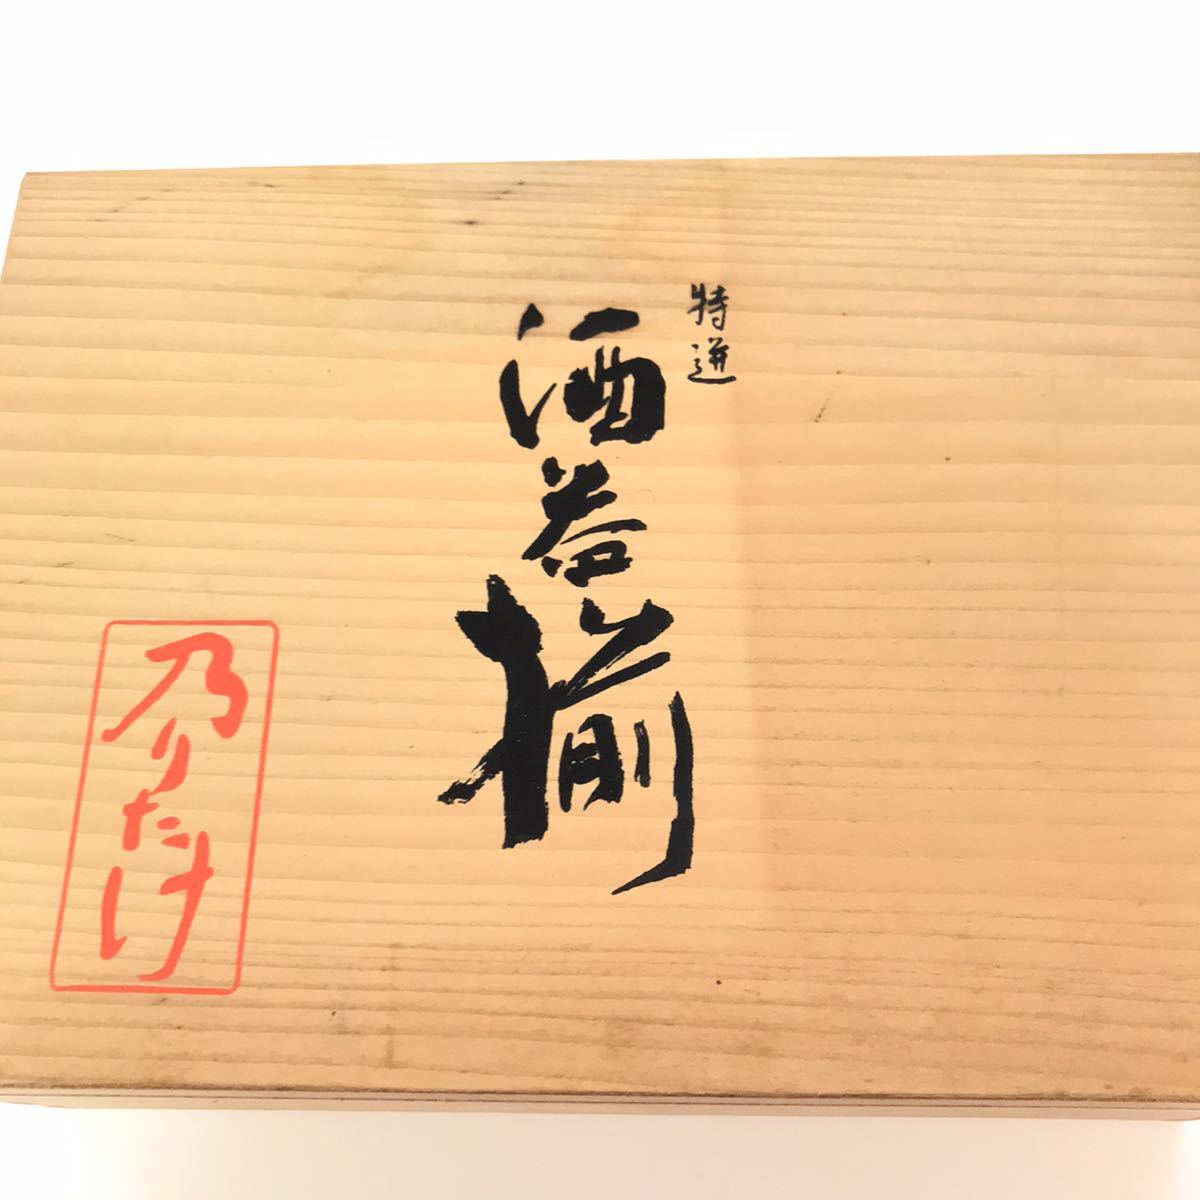 特選
酒器揃
乃りたけ